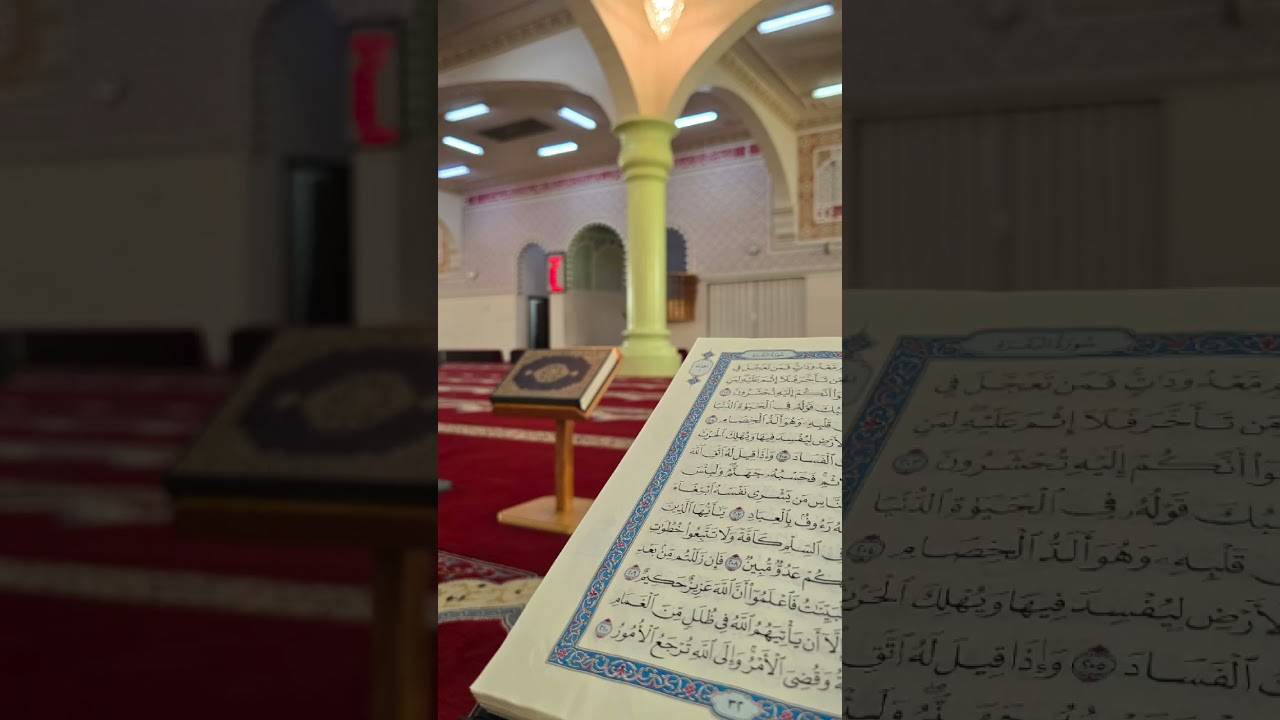 سُورَةُ البَقَرَةِ
مَّعْدُودَٰتٍ فَمَن تَعَجَّلَ فِي
تَأَخَّرَ فَلَآ إِثْمَ عَلَيْهِ لِمَنِ
أَنَّكُمْ إِلَيْهِ تُحْشَرُونَ ٢٠٣
قَوْلُهُۥ فِي ٱلْحَيَوٰةِ ٱلدُّنْيَا
قَلْبِهِۦ وَهُوَ أَلَدُّ ٱلْخِصَامِ ٢٠٤
ٱلْأَرْضِ لِيُفْسِدَ فِيهَا وَيُهْلِكَ ٱلْحَرْثَ
ٱلْفَسَادَ ٢٠٥ وَإِذَا قِيلَ لَهُ ٱتَّقِ ٱللَّهَ
فَحَسْبُهُۥ جَهَنَّمُ وَلَبِئْسَ
ٱلنَّاسِ مَن يَشْرِي نَفْسَهُ ٱبْتِغَآءَ
رَءُوفٌۢ بِٱلْعِبَادِ ٢٠٧ يَٰٓأَيُّهَا ٱلَّذِينَ
ٱلسِّلْمِ كَآفَّةً وَلَا تَتَّبِعُوا۟ خُطُوَٰتِ
عَدُوٌّ مُّبِينٌ ٢٠٨ فَإِن زَلَلْتُم مِّنۢ بَعْدِ
ٱلْبَيِّنَٰتُ فَٱعْلَمُوٓا۟ أَنَّ ٱللَّهَ عَزِيزٌ حَكِيمٌ ٢٠٩
إِلَّآ أَن يَأْتِيَهُمُ ٱللَّهُ فِي ظُلَلٍ مِّنَ ٱلْغَمَامِ
وَقُضِيَ ٱلْأَمْرُ وَإِلَى ٱللَّهِ تُرْجَعُ ٱلْأُمُورُ ٢١٠
٣٢